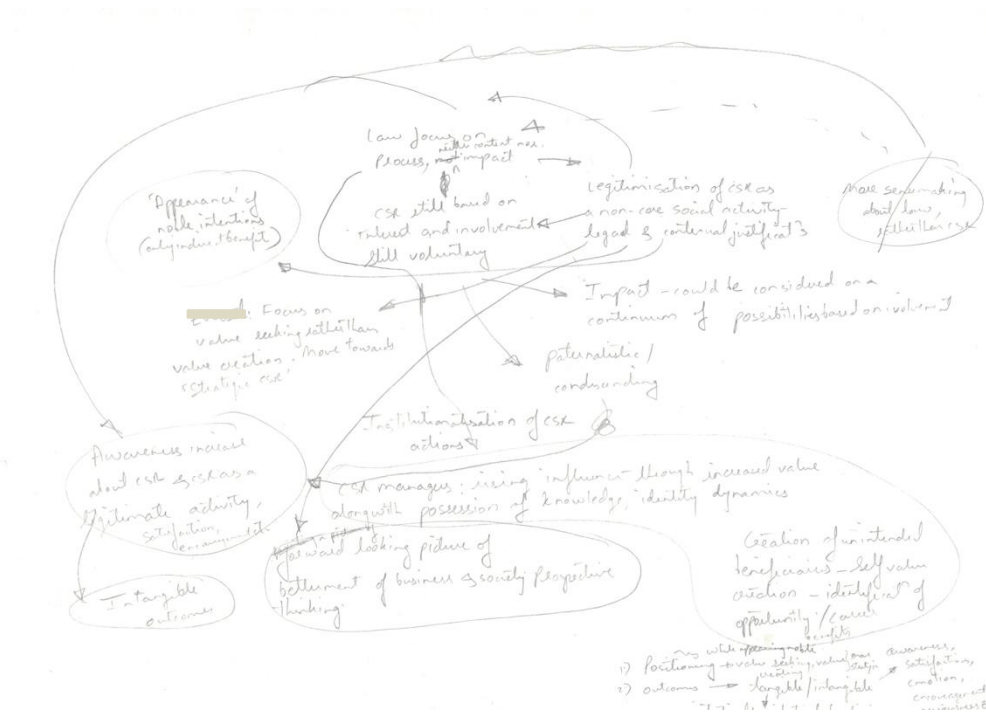 Law focus on
Process, not impact
neither content nor
CSR still based on
interest and involvement
still voluntary
Legitimisation of CSR as
a non-core social activity
legal & contextual justificat's
More sensemaking
about law,
rather than CSR
'Appearance' of
noble intentions
(only indirect benefit)
: Focus on
value seeking rather than
value creation. Move towards
'Strategic CSR'
Impact - could be considered on a
continuum of possibilities based on involvement
paternalistic/
condescending
Institutionalisation of CSR
actions
Awareness increase
about CSR & CSR as a
legitimate activity,
satisfaction,
encouragement
CSR managers: rising influence through increased value
alongwith possession of knowledge, identity dynamics
forward looking picture of
betterment of business & society prospective
thinking
Intangible
outcomes
Creation of unintended
beneficiaries - self value
creation - identificat of
opportunity/career
benefits
while appearing noble
1) Positioning → value seeking, value
creating
2) outcomes → tangible/intangible
awareness,
satisfaction,
emotion,
encouragement